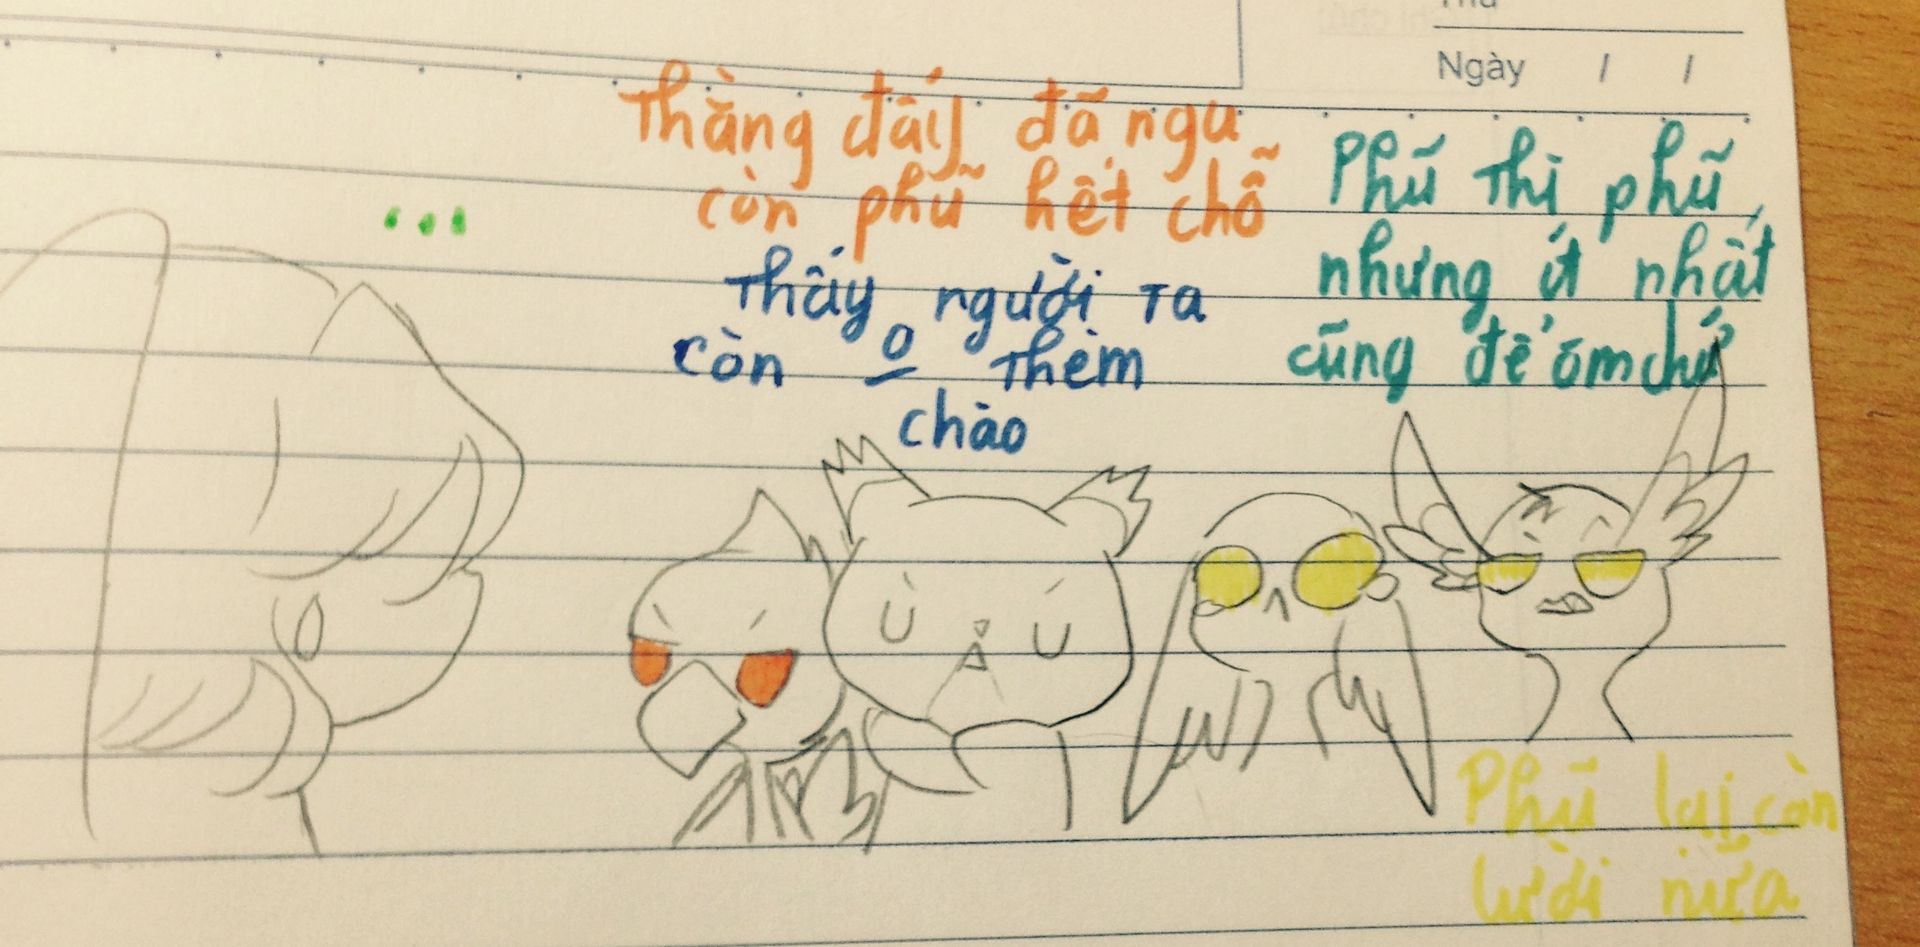 Thứ
Ngày / /
...
Thằng đấy đã ngu
còn phũ hết chỗ
Thấy người ta
còn o thèm
chào
Phũ thì phũ,
nhưng ít nhất
cũng để ôm chứ
Phũ lại còn
lười nữa